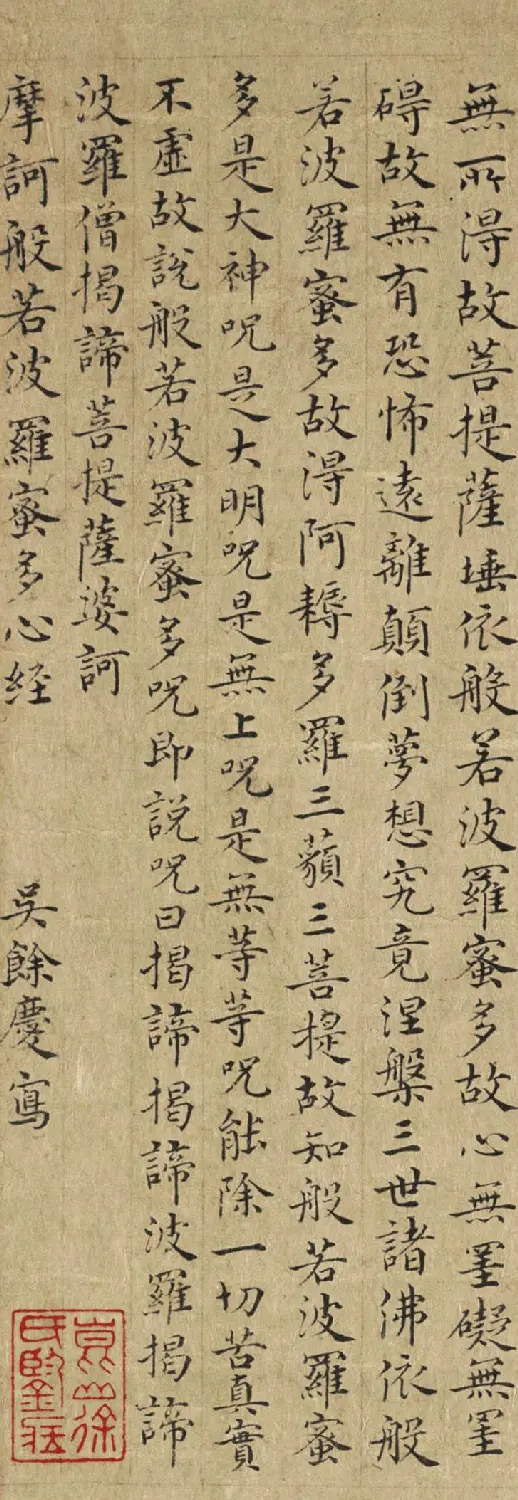 無所得故菩提薩埵依般若波羅蜜多故心無罣礙無罣
碍故無有恐怖遠離顛倒夢想究竟涅槃三世諸佛依般
若波羅蜜多故得阿耨多羅三藐三菩提故知般若波羅蜜
多是大神呪是大明呪是無上呪是無等等呪能除一切苦真實
不虛故說般若波羅蜜多呪即說呪曰揭諦揭諦波羅揭諦
波羅僧揭諦菩提薩婆訶
摩訶般若波羅蜜多心経
吳餘慶寫